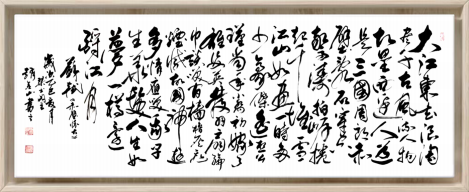 大江東去浪淘
盡千古風流人物
故壘西邊人道
是三國周郎赤
壁亂石穿空
驚濤拍岸捲
起千堆雪
江山如畫一時多
少豪傑遙想公
瑾當年小喬初嫁了
雄姿英發羽扇綸
巾談笑間檣櫓灰飛
煙滅故國神遊
多情應笑我早
生華髮人生如
夢一樽還
酹江月
蘇軾